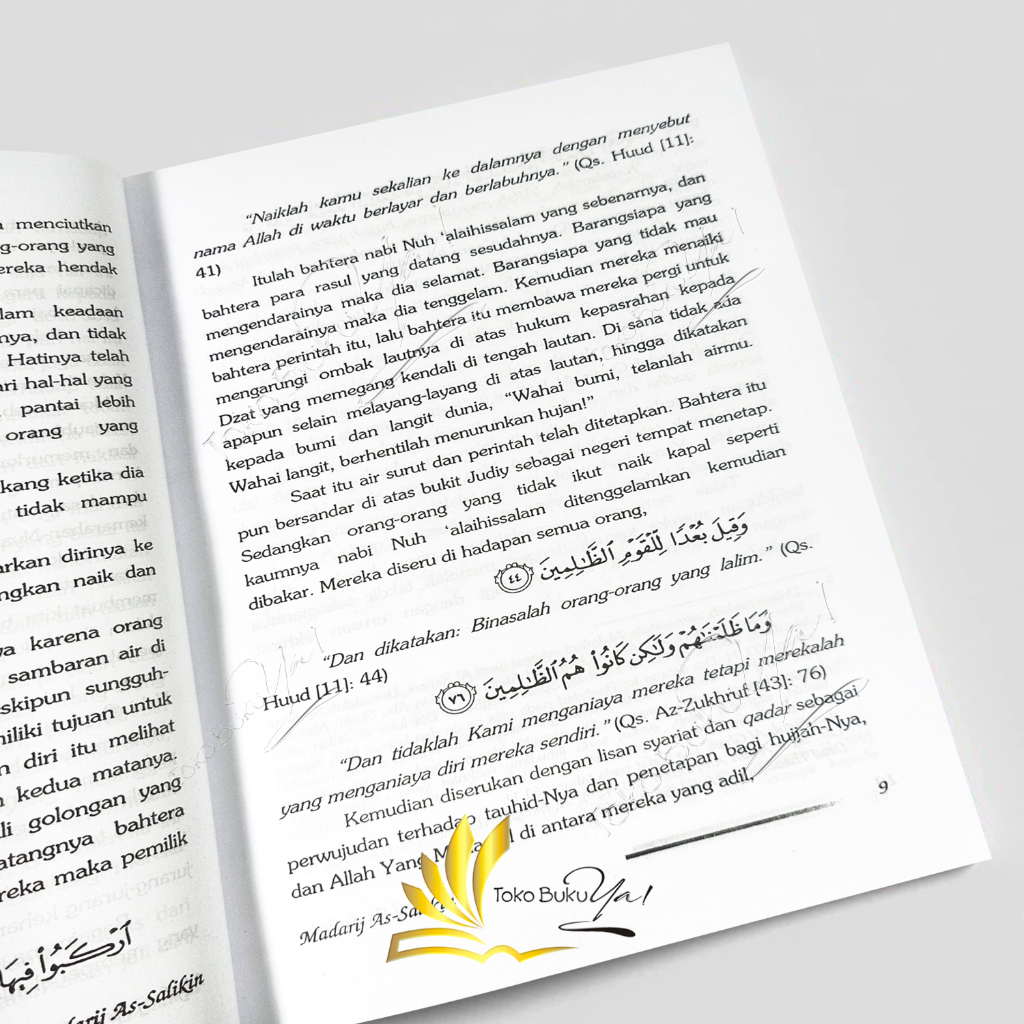 menciutkan
g-orang yang
ereka hendak
lam keadaan
nya, dan tidak
Hatinya telah
ari hal-hal yang
pantai lebih
orang yang
kang ketika dia
tidak mampu
arkan dirinya ke
ngkan naik dan
ya karena orang
sambaran air di
eskipun sungguh-
miliki tujuan untuk
n diri itu melihat
kedua matanya.
li golongan yang
atangnya bahtera
reka maka pemilik
ٱرْكَبُوا۟ فِيهَا
darij As-Salikin
“Naiklah kamu sekalian ke dalamnya dengan menyebut
nama Allah di waktu berlayar dan berlabuhnya.” (Qs. Huud [11]:
41)
Itulah bahtera nabi Nuh ‘alaihissalam yang sebenarnya, dan
bahtera para rasul yang datang sesudahnya. Barangsiapa yang
mengendarainya maka dia selamat. Barangsiapa yang tidak mau
mengendarainya maka dia tenggelam. Kemudian mereka menaiki
bahtera perintah itu, lalu bahtera itu membawa mereka pergi untuk
mengarungi ombak lautnya di atas hukum kepasrahan kepada
Dzat yang memegang kendali di tengah lautan. Di sana tidak ada
apapun selain melayang-layang di atas lautan, hingga dikatakan
kepada bumi dan langit dunia, “Wahai bumi, telanlah airmu.
Wahai langit, berhentilah menurunkan hujan!”
Saat itu air surut dan perintah telah ditetapkan. Bahtera itu
pun bersandar di atas bukit Judiy sebagai negeri tempat menetap.
Sedangkan orang-orang yang tidak ikut naik kapal seperti
kaumnya nabi Nuh ‘alaihissalam ditenggelamkan kemudian
dibakar. Mereka diseru di hadapan semua orang,
وَقِيلَ بُعْدًا لِّلْقَوْمِ ٱلظَّٰلِمِينَ ٤٤
“Dan dikatakan: Binasalah orang-orang yang lalim.” (Qs.
Huud [11]: 44)
وَمَا ظَلَمْنَٰهُمْ وَلَٰكِن كَانُوا۟ هُمُ ٱلظَّٰلِمِينَ ٧٦
“Dan tidaklah Kami menganiaya mereka tetapi merekalah
yang menganiaya diri mereka sendiri.” (Qs. Az-Zukhruf [43]: 76)
Kemudian diserukan dengan lisan syariat dan qadar sebagai
perwujudan terhadap tauhid-Nya dan penetapan bagi hujjah-Nya,
dan Allah Yang di antara mereka yang adil,
9
Madarij As-Salikin
Toko Buku Ya!